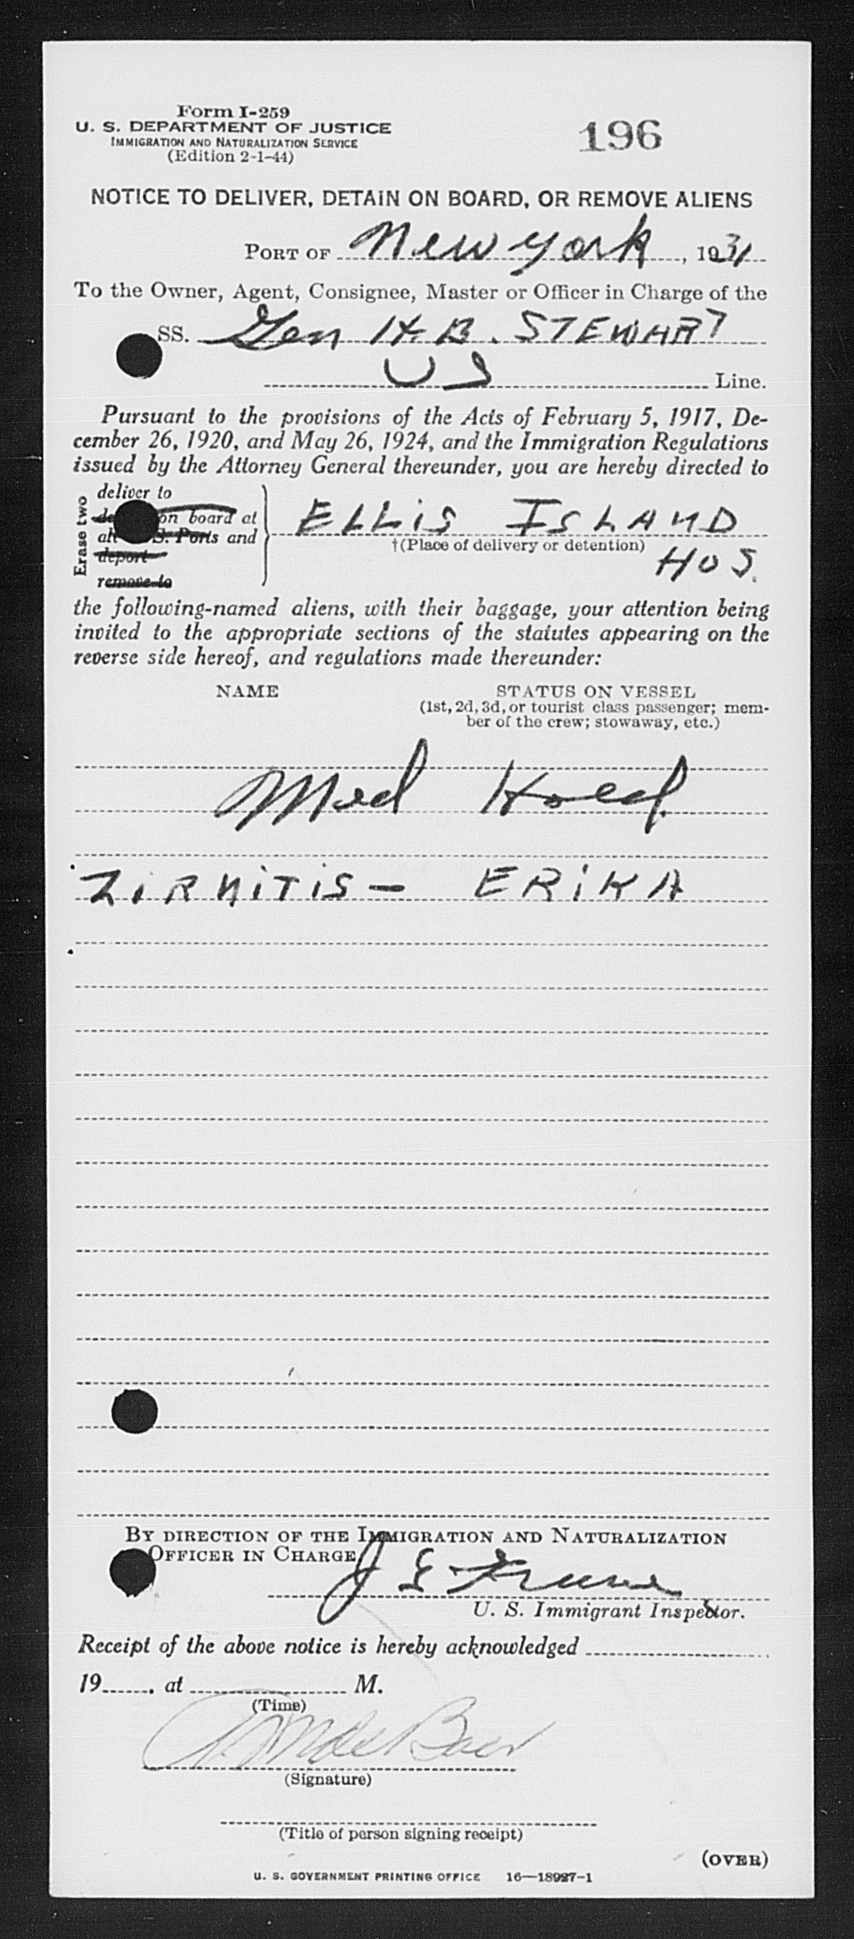 Form I-259
U. S. DEPARTMENT OF JUSTICE
IMMIGRATION AND NATURALIZATION SERVICE
(Edition 2-1-44)
196
NOTICE TO DELIVER, DETAIN ON BOARD, OR REMOVE ALIENS
PORT OF New York, 1931
To the Owner, Agent, Consignee, Master or Officer in Charge of the
SS. Gen H. B. STEWART
US Line.
Pursuant to the provisions of the Acts of February 5, 1917, De-
cember 26, 1920, and May 26, 1924, and the Immigration Regulations
issued by the Attorney General thereunder, you are hereby directed to
Erase two
deliver to
on board at
all U. S. Ports and
deport
remove to
ELLIS ISLAND
†(Place of delivery or detention)
HOS.
the following-named aliens, with their baggage, your attention being
invited to the appropriate sections of the statutes appearing on the
reverse side hereof, and regulations made thereunder:
NAME STATUS ON VESSEL
(1st, 2d, 3d, or tourist class passenger; mem-
ber of the crew; stowaway, etc.)
Med Hold
ZIRNITIS - ERIKA
BY DIRECTION OF THE IMMIGRATION AND NATURALIZATION
OFFICER IN CHARGE
J
U. S. Immigrant Inspector.
Receipt of the above notice is hereby acknowledged
19 , at M.
(Time)
(Signature)
(Title of person signing receipt)
(OVER)
U. S. GOVERNMENT PRINTING OFFICE 16—18927-1